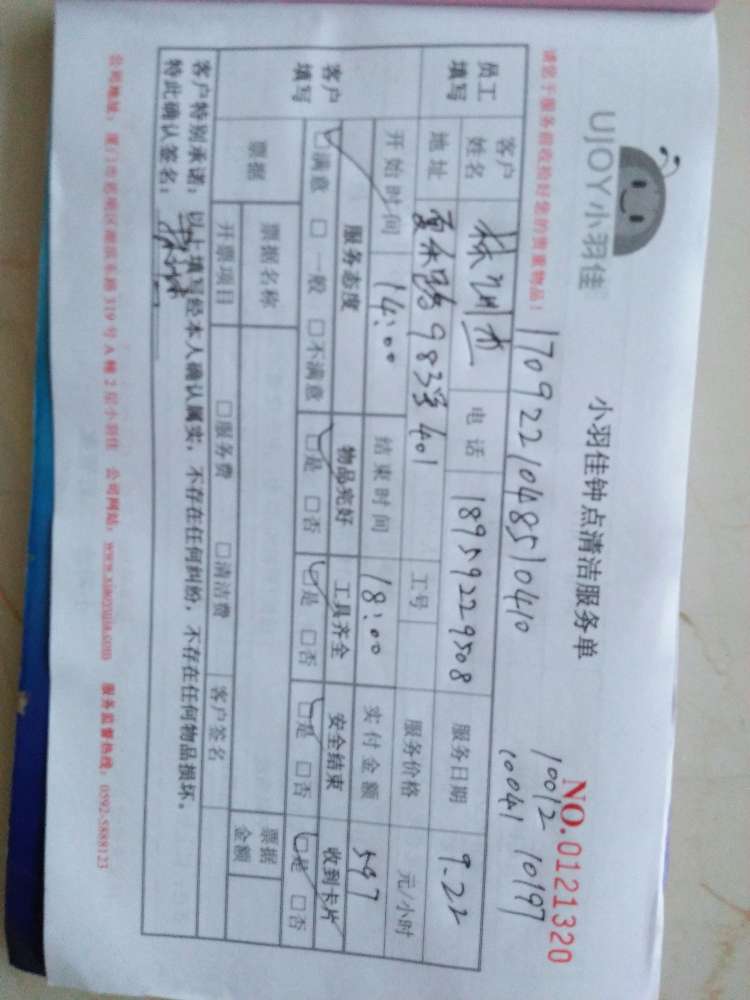 UJOY小羽佳
小羽佳钟点清洁服务单
NO.0121320
10012 10197
10041
请您于服务前收检好您的贵重物品！
1709221048510410
员工填写 客户姓名 电话 18959229508 服务日期 9.22
地址 983号401 工号 服务价格 元/小时
客户填写 开始时间 14:00 结束时间 18:00 实付金额 597
服务态度 物品完好 工具齐全 安全结束 收到卡片
☑满意 □一般 □不满意 ☑是 □否 ☑是 □否 ☑是 □否 ☑是 □否
票据 票据名称 票据金额
开票项目 □服务费 □清洁费 客户签名
客户特别承诺：以上填写经本人确认属实，不存在任何纠纷，不存在任何物品损坏。
特此确认签名：
公司地址：厦门市思明区湖滨东路319号A幢2层小羽佳 公司网站：www.xiaoyujia.com 服务监督热线：0592-5888123